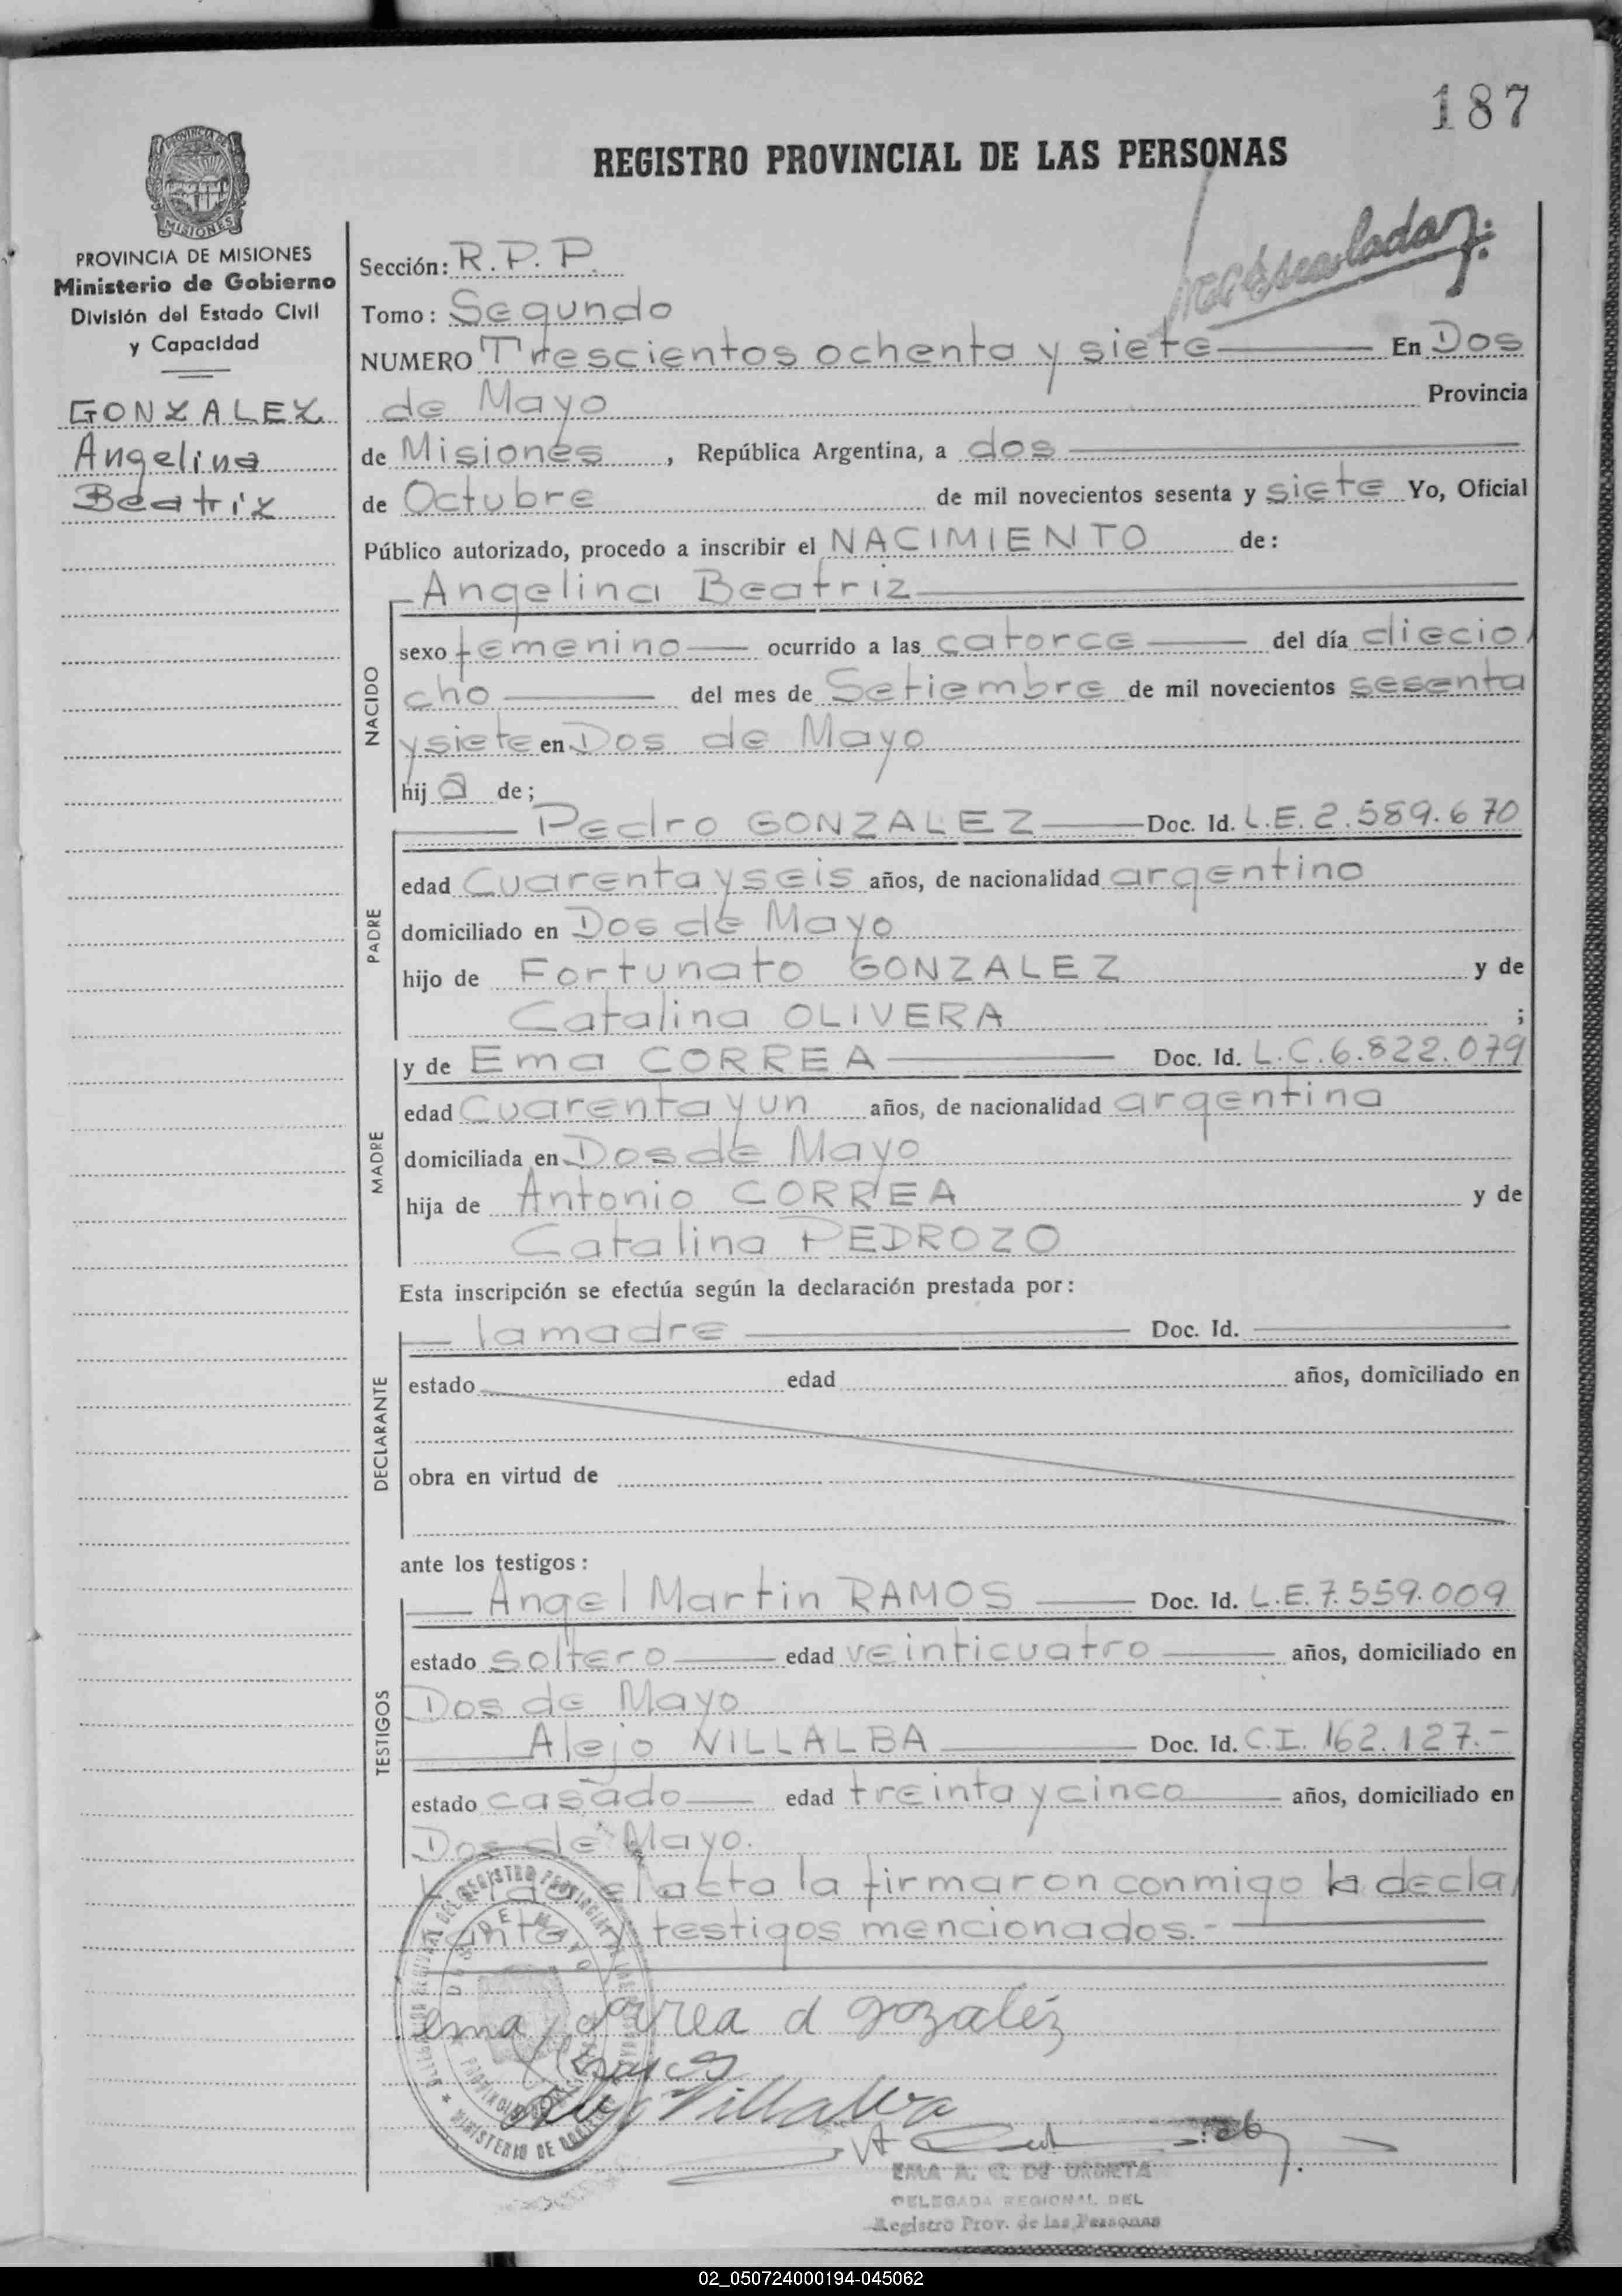 187
REGISTRO PROVINCIAL DE LAS PERSONAS
PROVINCIA DE MISIONES
Ministerio de Gobierno
División del Estado Civil
y Capacidad
GONZALEZ
Angelina
Beatriz
Sección: R.P.P.
Tomo: Segundo
NUMERO Trescientos ochenta y siete En Dos
de Mayo Provincia
de Misiones, República Argentina, a dos
de Octubre de mil novecientos sesenta y siete Yo, Oficial
Público autorizado, procedo a inscribir el NACIMIENTO de:
Angelina Beatriz
NACIDO
sexo femenino ocurrido a las catorce del día diecio
cho del mes de Setiembre de mil novecientos sesenta
y siete en Dos de Mayo
hija de;
Pedro GONZALEZ Doc. Id. L.E. 2.589.670
PADRE
edad Cuarenta y seis años, de nacionalidad argentino
domiciliado en Dos de Mayo
hijo de Fortunato GONZALEZ y de
Catalina OLIVERA ;
y de Ema CORREA Doc. Id. L.C. 6.822.079
MADRE
edad Cuarenta y un años, de nacionalidad argentina
domiciliada en Dos de Mayo
hija de Antonio CORREA y de
Catalina PEDROZO
Esta inscripción se efectúa según la declaración prestada por:
la madre Doc. Id.
DECLARANTE
estado edad años, domiciliado en
obra en virtud de
ante los testigos:
Angel Martin RAMOS Doc. Id. L.E. 7.559.009
TESTIGOS
estado soltero edad veinticuatro años, domiciliado en
Dos de Mayo
Alejo VILLALBA Doc. Id. C.I. 162.127.-
estado casado edad treinta y cinco años, domiciliado en
Dos de Mayo.
acta la firmaron conmigo la decla
rante y testigos mencionados.-
ema correa d gozaléz
Villalva
EMA A. C. DE URBIETA
DELEGADA REGIONAL DEL
Registro Prov. de las Personas
02_050724000194-045062